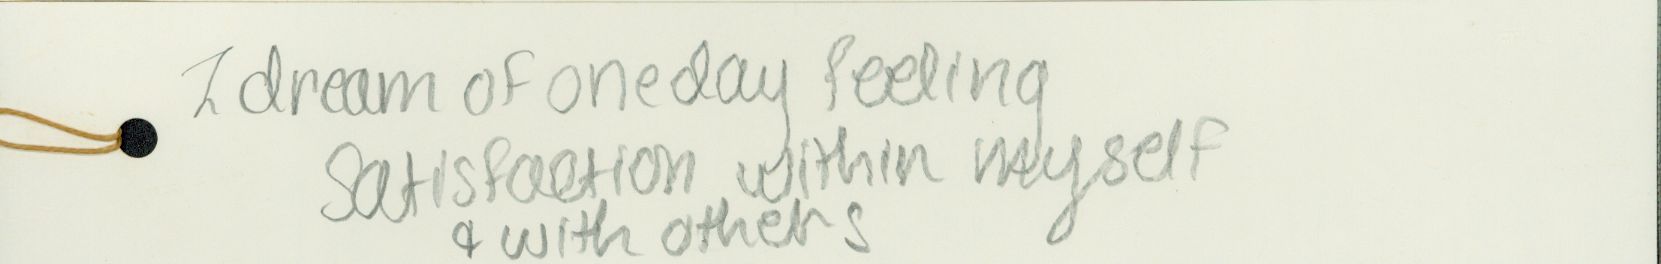 I dream of one day feeling
Satisfaction within myself
& with others